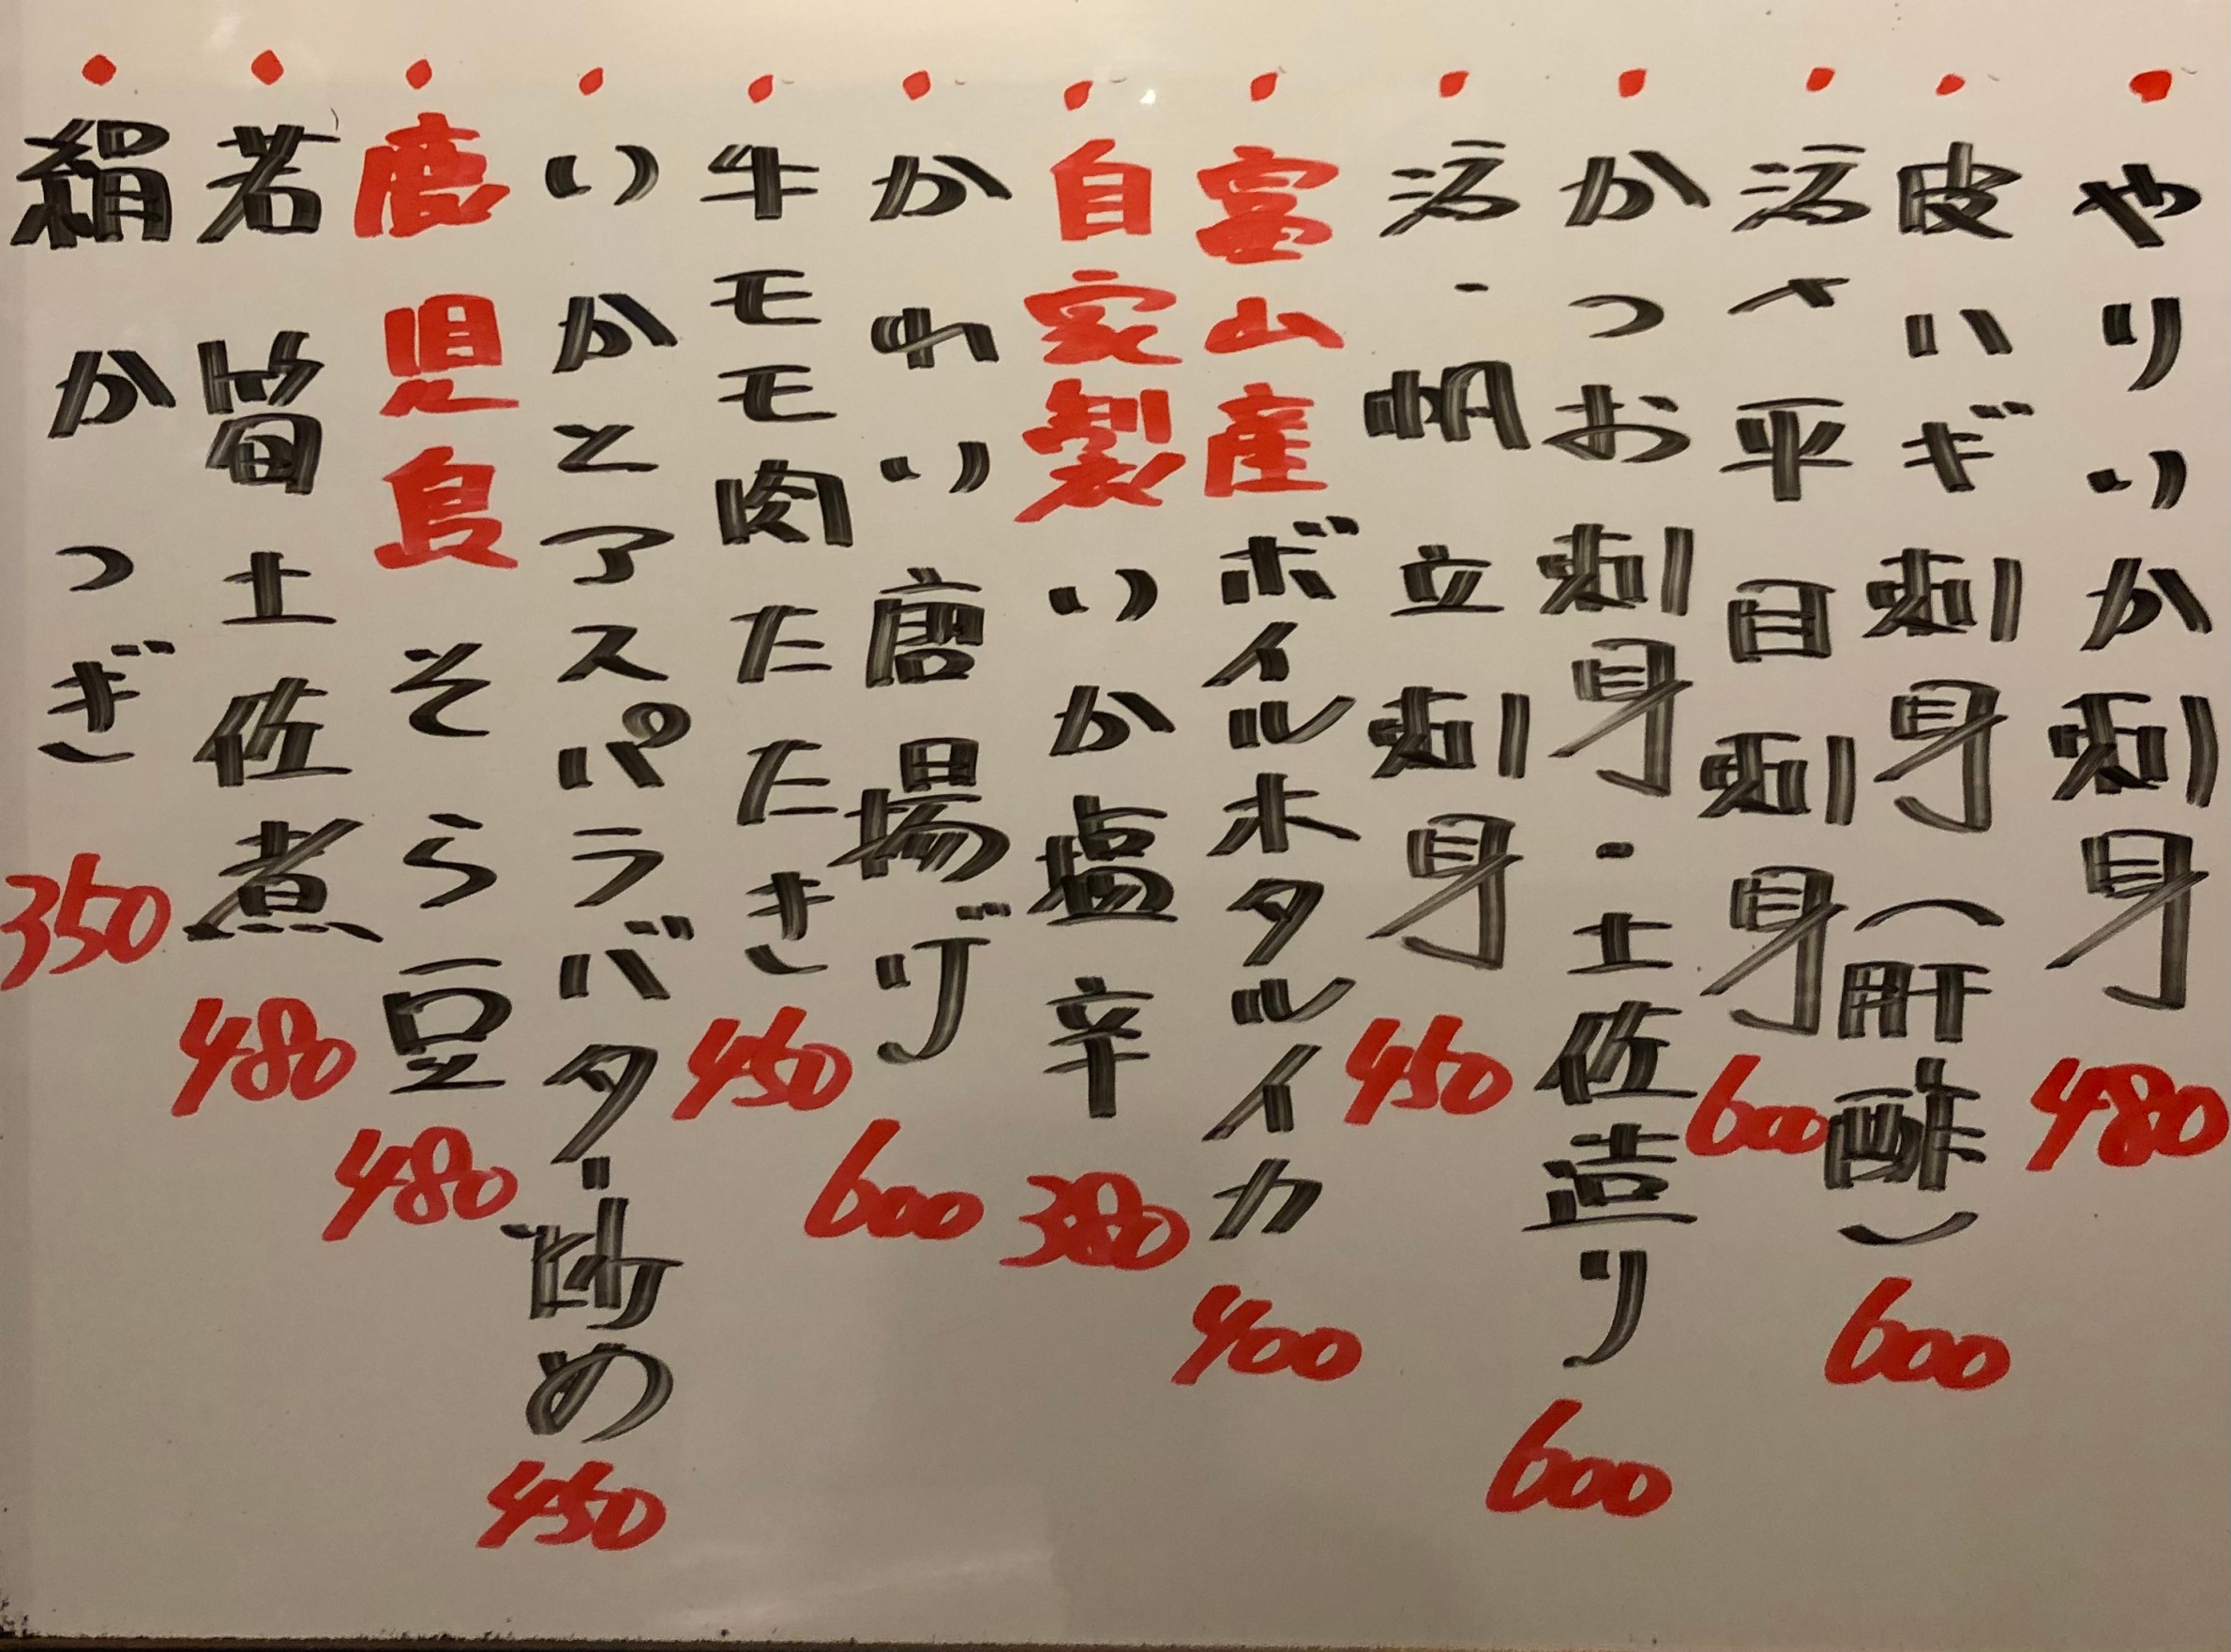 ・やりいか刺身 480
・皮ハギ刺身（肝酢） 600
・活〆平目刺身 600
・かつお刺身・土佐造り 600
・活・帆立刺身 450
・富山産ボイルホタルイカ 400
・自家製いか塩辛 380
・かれい唐揚げ 600
・牛モモ肉たたき 450
・いかとアスパラバター炒め 450
・鹿児島そら豆 480
・若筍土佐煮 480
・絹かつぎ 350